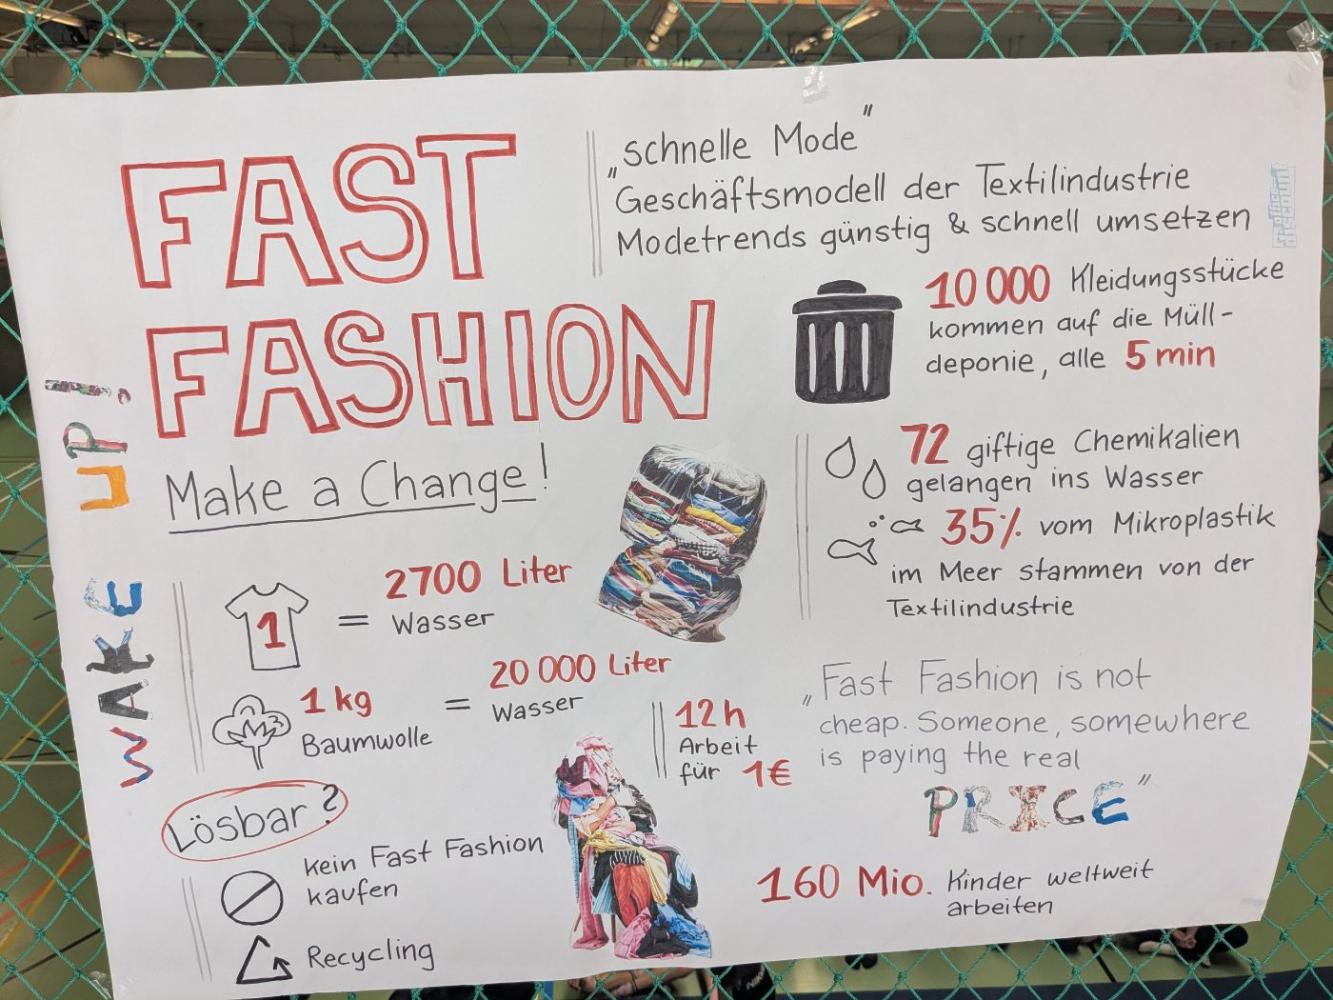 FAST
FASHION
Make a Change!
WAKE UP!
„schnelle Mode“
Geschäftsmodell der Textilindustrie
Modetrends günstig & schnell umsetzen
10 000 Kleidungsstücke
kommen auf die Müll-
deponie, alle 5 min
72 giftige Chemikalien
gelangen ins Wasser
35% vom Mikroplastik
im Meer stammen von der
Textilindustrie
1 = 2700 Liter
Wasser
1 kg
Baumwolle
= 20 000 Liter
Wasser
12 h
Arbeit
für 1€
„Fast Fashion is not
cheap. Someone, somewhere
is paying the real
PRICE“
Lösbar?
kein Fast Fashion
kaufen
Recycling
160 Mio. Kinder weltweit
arbeiten
office
discount